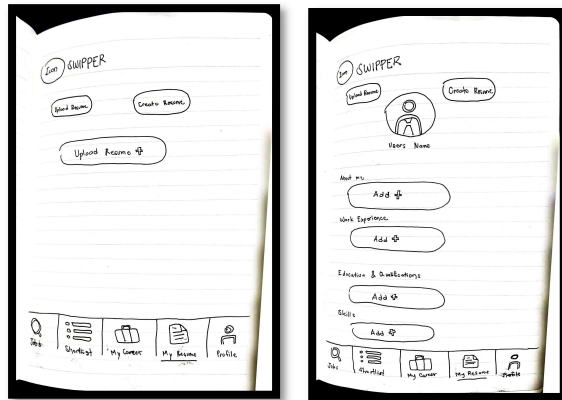 Icon SWIPPER
Upload Resume
Create Resume
Upload Resume
Jobs
Shortlist
My Career
My Resume
Profile
Icon SWIPPER
Upload Resume
Create Resume
Users Name
About me
Add
Work Experience
Add
Education & Qualifications
Add
Skills
Add
Jobs
Shortlist
My Career
My Resume
Profile